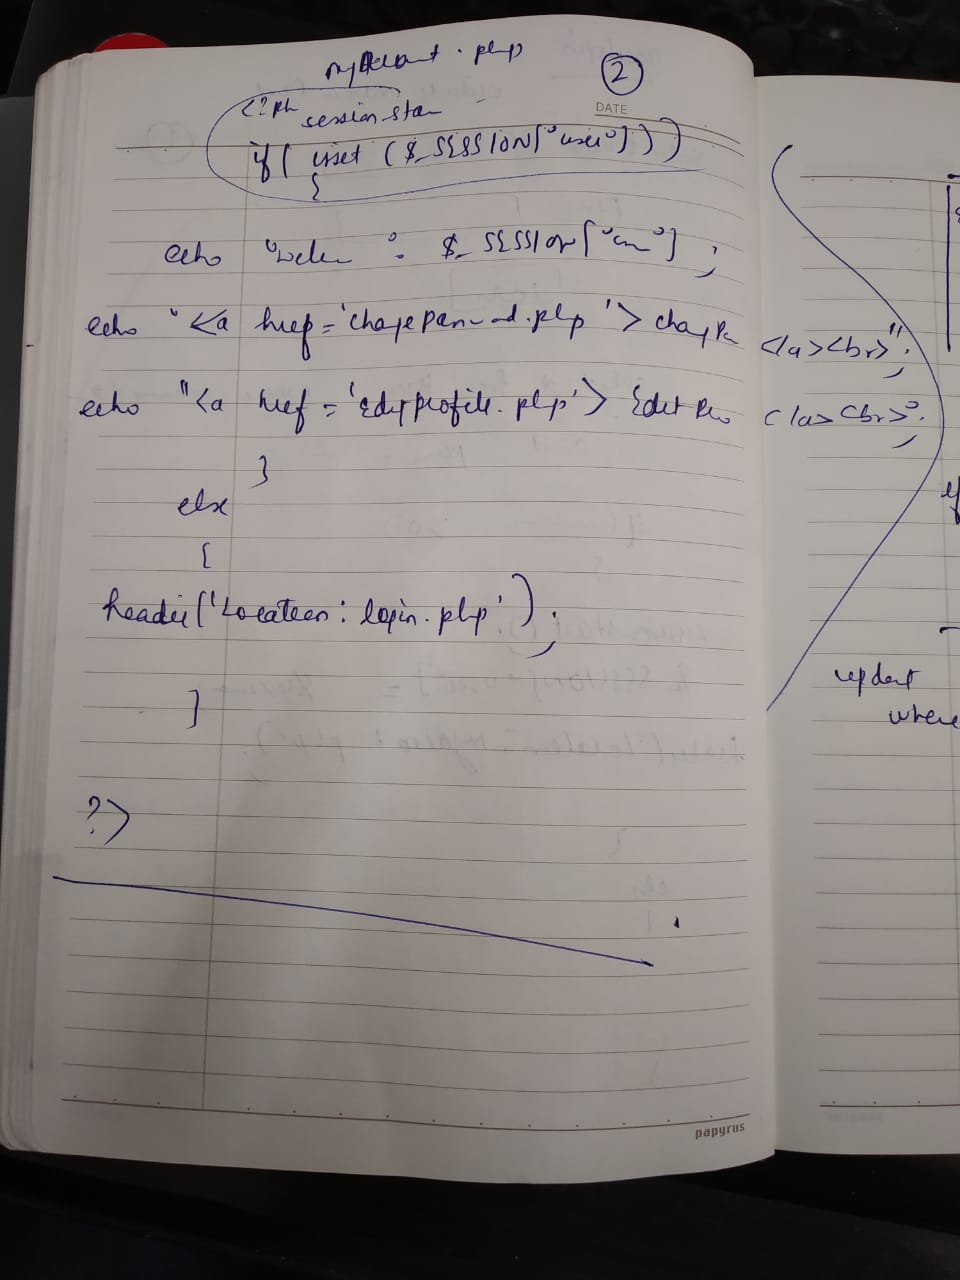 myAccount.php
2
DATE
<?ph
session_star
if( isset ($_SESSION["user"]))
{
echo "Welcm" . $_SESSION["
echo "<a href='
.php'> </a><br>";
echo "<a href='Editprofile.php'> Edit Pro </a><br>";
}
else
{
header('Location: login.php');
}
?>
papyrus
updat
where